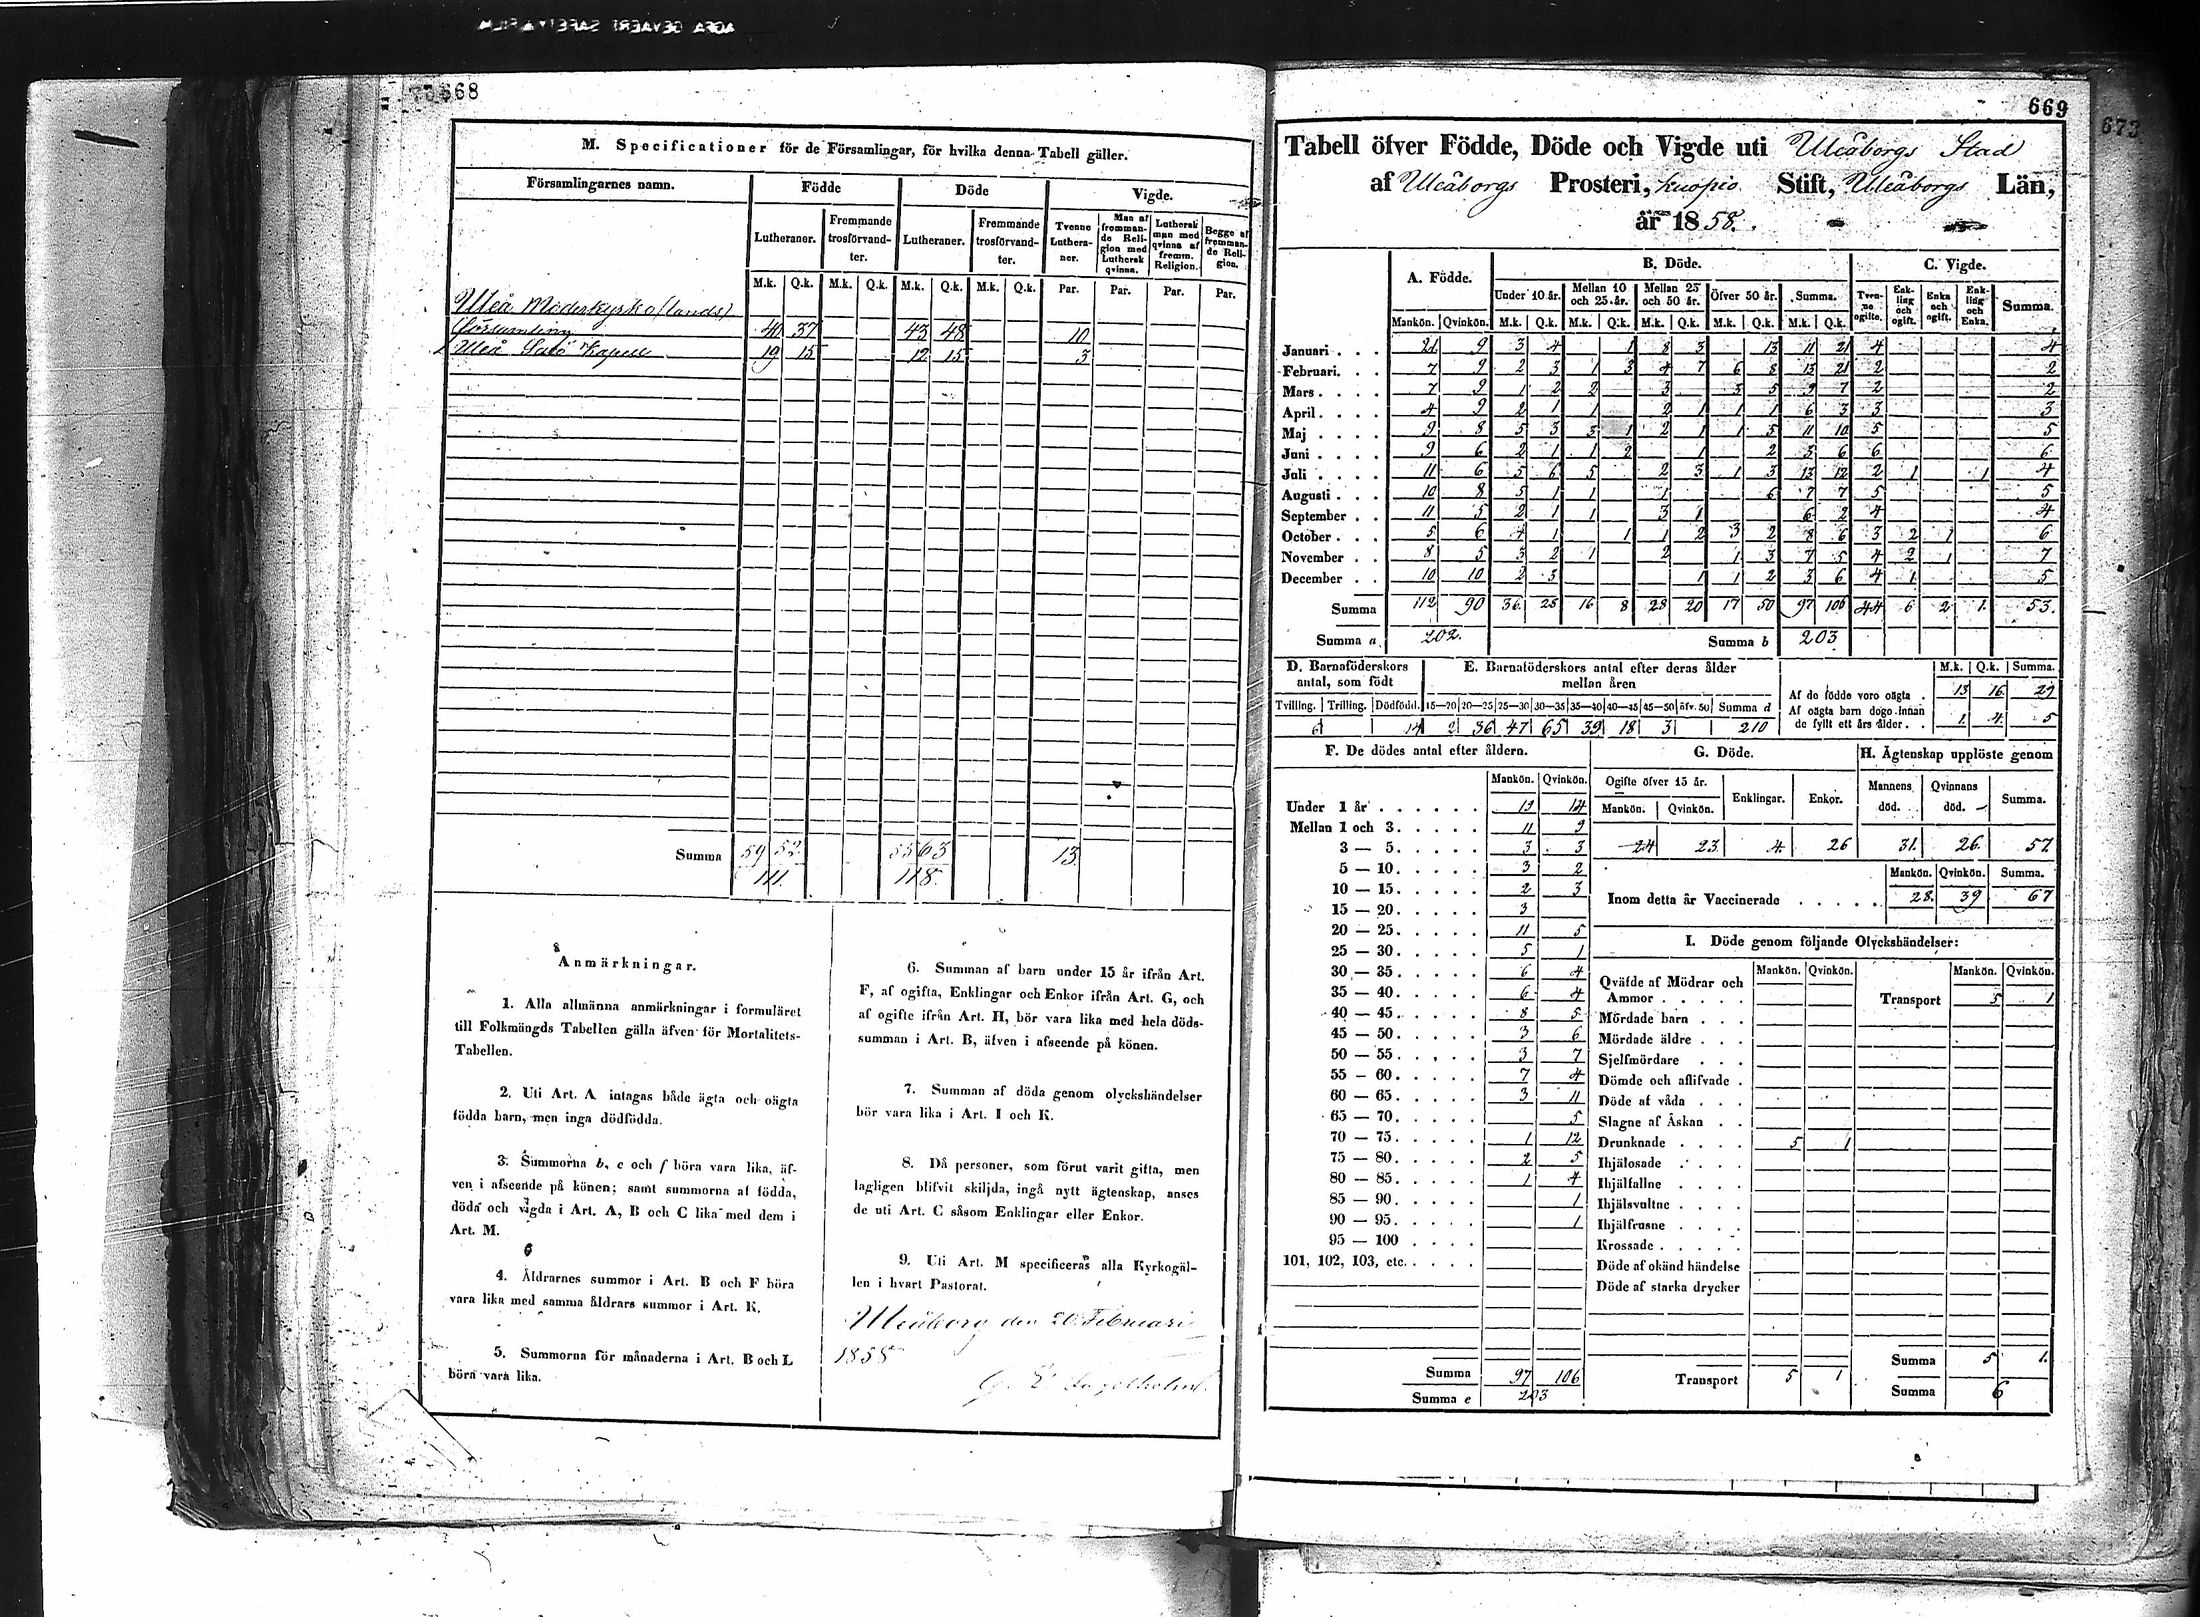 668
M. Specificationer för de Församlingar, för hvilka denna Tabell gäller.
Församlingarnes namn. Födde Döde Vigde.
Lutheraner. Fremmande trosförvandter. Lutheraner. Fremmande trosförvandter. Tvenne Lutheraner. Man af fremmande Religion med Luthersk qvinna. Luthersk man med qvinna af fremm. Religion. Begge af fremmande Religion.
M.k. Q.k. M.k. Q.k. M.k. Q.k. M.k. Q.k. Par. Par. Par. Par.
Uleå Moderkyrko (lands)
Församling 40 37 43 48 10
Uleå Salo Kapell 19 15 12 15 3
Summa 59 52 55 63 13
111. 118.
Anmärkningar.
1. Alla allmänna anmärkningar i formuläret
till Folkmängds Tabellen gälla äfven för Mortalitets-
Tabellen.
2. Uti Art. A intagas både ägta och oägta
födda barn, men inga dödfödda.
3. Summorna b, c och f böra vara lika, äf-
ven i afseende på könen; samt summorna af födda,
döda och vigda i Art. A, B och C lika med dem i
Art. M.
4. Åldrarnes summor i Art. B och F böra
vara lika med samma åldrars summor i Art. K.
5. Summorna för månaderna i Art. B och L
böra vara lika.
6. Summan af barn under 15 år ifrån Art.
F, af ogifta, Enklingar och Enkor ifrån Art. G, och
af ogifte ifrån Art. H, bör vara lika med hela döds-
summan i Art. B, äfven i afseende på könen.
7. Summan af döda genom olyckshändelser
bör vara lika i Art. I och K.
8. Då personer, som förut varit gifta, men
lagligen blifvit skiljda, ingå nytt ägtenskap, anses
de uti Art. C såsom Enklingar eller Enkor.
9. Uti Art. M specificeras alla Kyrkogäl-
len i hvart Pastorat.
Uleåborg den 20 Februari
1858
669
673
Tabell öfver Födde, Döde och Vigde uti Uleåborgs Stad
af Uleåborgs Prosteri, Kuopio Stift, Uleåborgs Län,
år 1858.
A. Födde. B. Döde. C. Vigde.
Under 10 år. Mellan 10 och 25 år. Mellan 25 och 50 år. Öfver 50 år. Summa. Tvenne ogifte. Enkling och ogift. Enka och ogift. Enkling och Enka. Summa.
Mankön. Qvinkön. M.k. Q.k. M.k. Q.k. M.k. Q.k. M.k. Q.k. M.k. Q.k.
Januari 21 9 3 4 1 8 3 13 11 21 4 4
Februari 7 9 2 3 1 3 4 7 6 8 13 21 2 2
Mars 7 9 1 2 2 3 3 5 9 7 2 2
April 4 9 2 1 1 2 1 1 1 6 3 3 3
Maj 9 8 5 3 3 1 2 1 1 5 11 10 5 5
Juni 9 6 2 1 1 2 1 2 3 6 6 6
Juli 11 6 5 6 5 2 3 1 3 13 12 2 1 1 4
Augusti 10 8 5 1 1 1 6 7 7 5 5
September 11 5 2 1 1 3 1 6 2 4 4
October 5 6 4 1 1 1 2 3 2 8 6 3 2 1 6
November 8 5 3 2 1 2 1 3 7 5 4 2 1 7
December 10 10 2 3 1 1 2 3 6 4 1 5
Summa 112 90 36 28 16 8 28 20 17 50 97 106 44 6 2 1. 53.
Summa a 202. Summa b 203
D. Barnaföderskors antal, som födt
Tvilling. Trilling. Dödfödd.
6 14
E. Barnaföderskors antal efter deras ålder mellan åren
15—20 20—25 25—30 30—35 35—40 40—45 45—50 öfv. 50 Summa d
2 36 47 65 39 18 3 210
M.k. Q.k. Summa.
Af de födde voro oägta 13 16 29
Af oägta barn dogo innan
de fyllt ett års ålder 1. 4. 5
F. De dödes antal efter åldern.
Mankön. Qvinkön.
Under 1 år 19 14
Mellan 1 och 3 11 9
3 — 5 3 3
5 — 10 3 2
10 — 15 2 3
15 — 20 3
20 — 25 11 5
25 — 30 5 1
30 — 35 6 4
35 — 40 6 4
40 — 45 8 5
45 — 50 3 6
50 — 55 3 7
55 — 60 7 4
60 — 65 3 11
65 — 70 5
70 — 75 1 12
75 — 80 2 5
80 — 85 1 4
85 — 90 1
90 — 95 1
95 — 100
101, 102, 103, etc.
Summa 97 106
Summa e 203
G. Döde.
Ogifte öfver 15 år. Enklingar. Enkor.
Mankön. Qvinkön.
24 23 4. 26
H. Ägtenskap upplöste genom
Mannens död. Qvinnans död. Summa.
31. 26. 57
Mankön. Qvinkön. Summa.
Inom detta år Vaccinerade 28. 39 67
I. Döde genom följande Olyckshändelser:
Mankön. Qvinkön. Mankön. Qvinkön.
Qväfde af Mödrar och
Ammor Transport 5 1
Mördade barn
Mördade äldre
Sjelfmördare
Dömde och aflifvade
Döde af våda
Slagne af Åskan
Drunknade 5 1
Ihjälosade
Ihjälfallne
Ihjälsvultne
Ihjälfrusne
Krossade
Döde af okänd händelse
Döde af starka drycker
Summa 5 1.
Transport 5 1
Summa 6